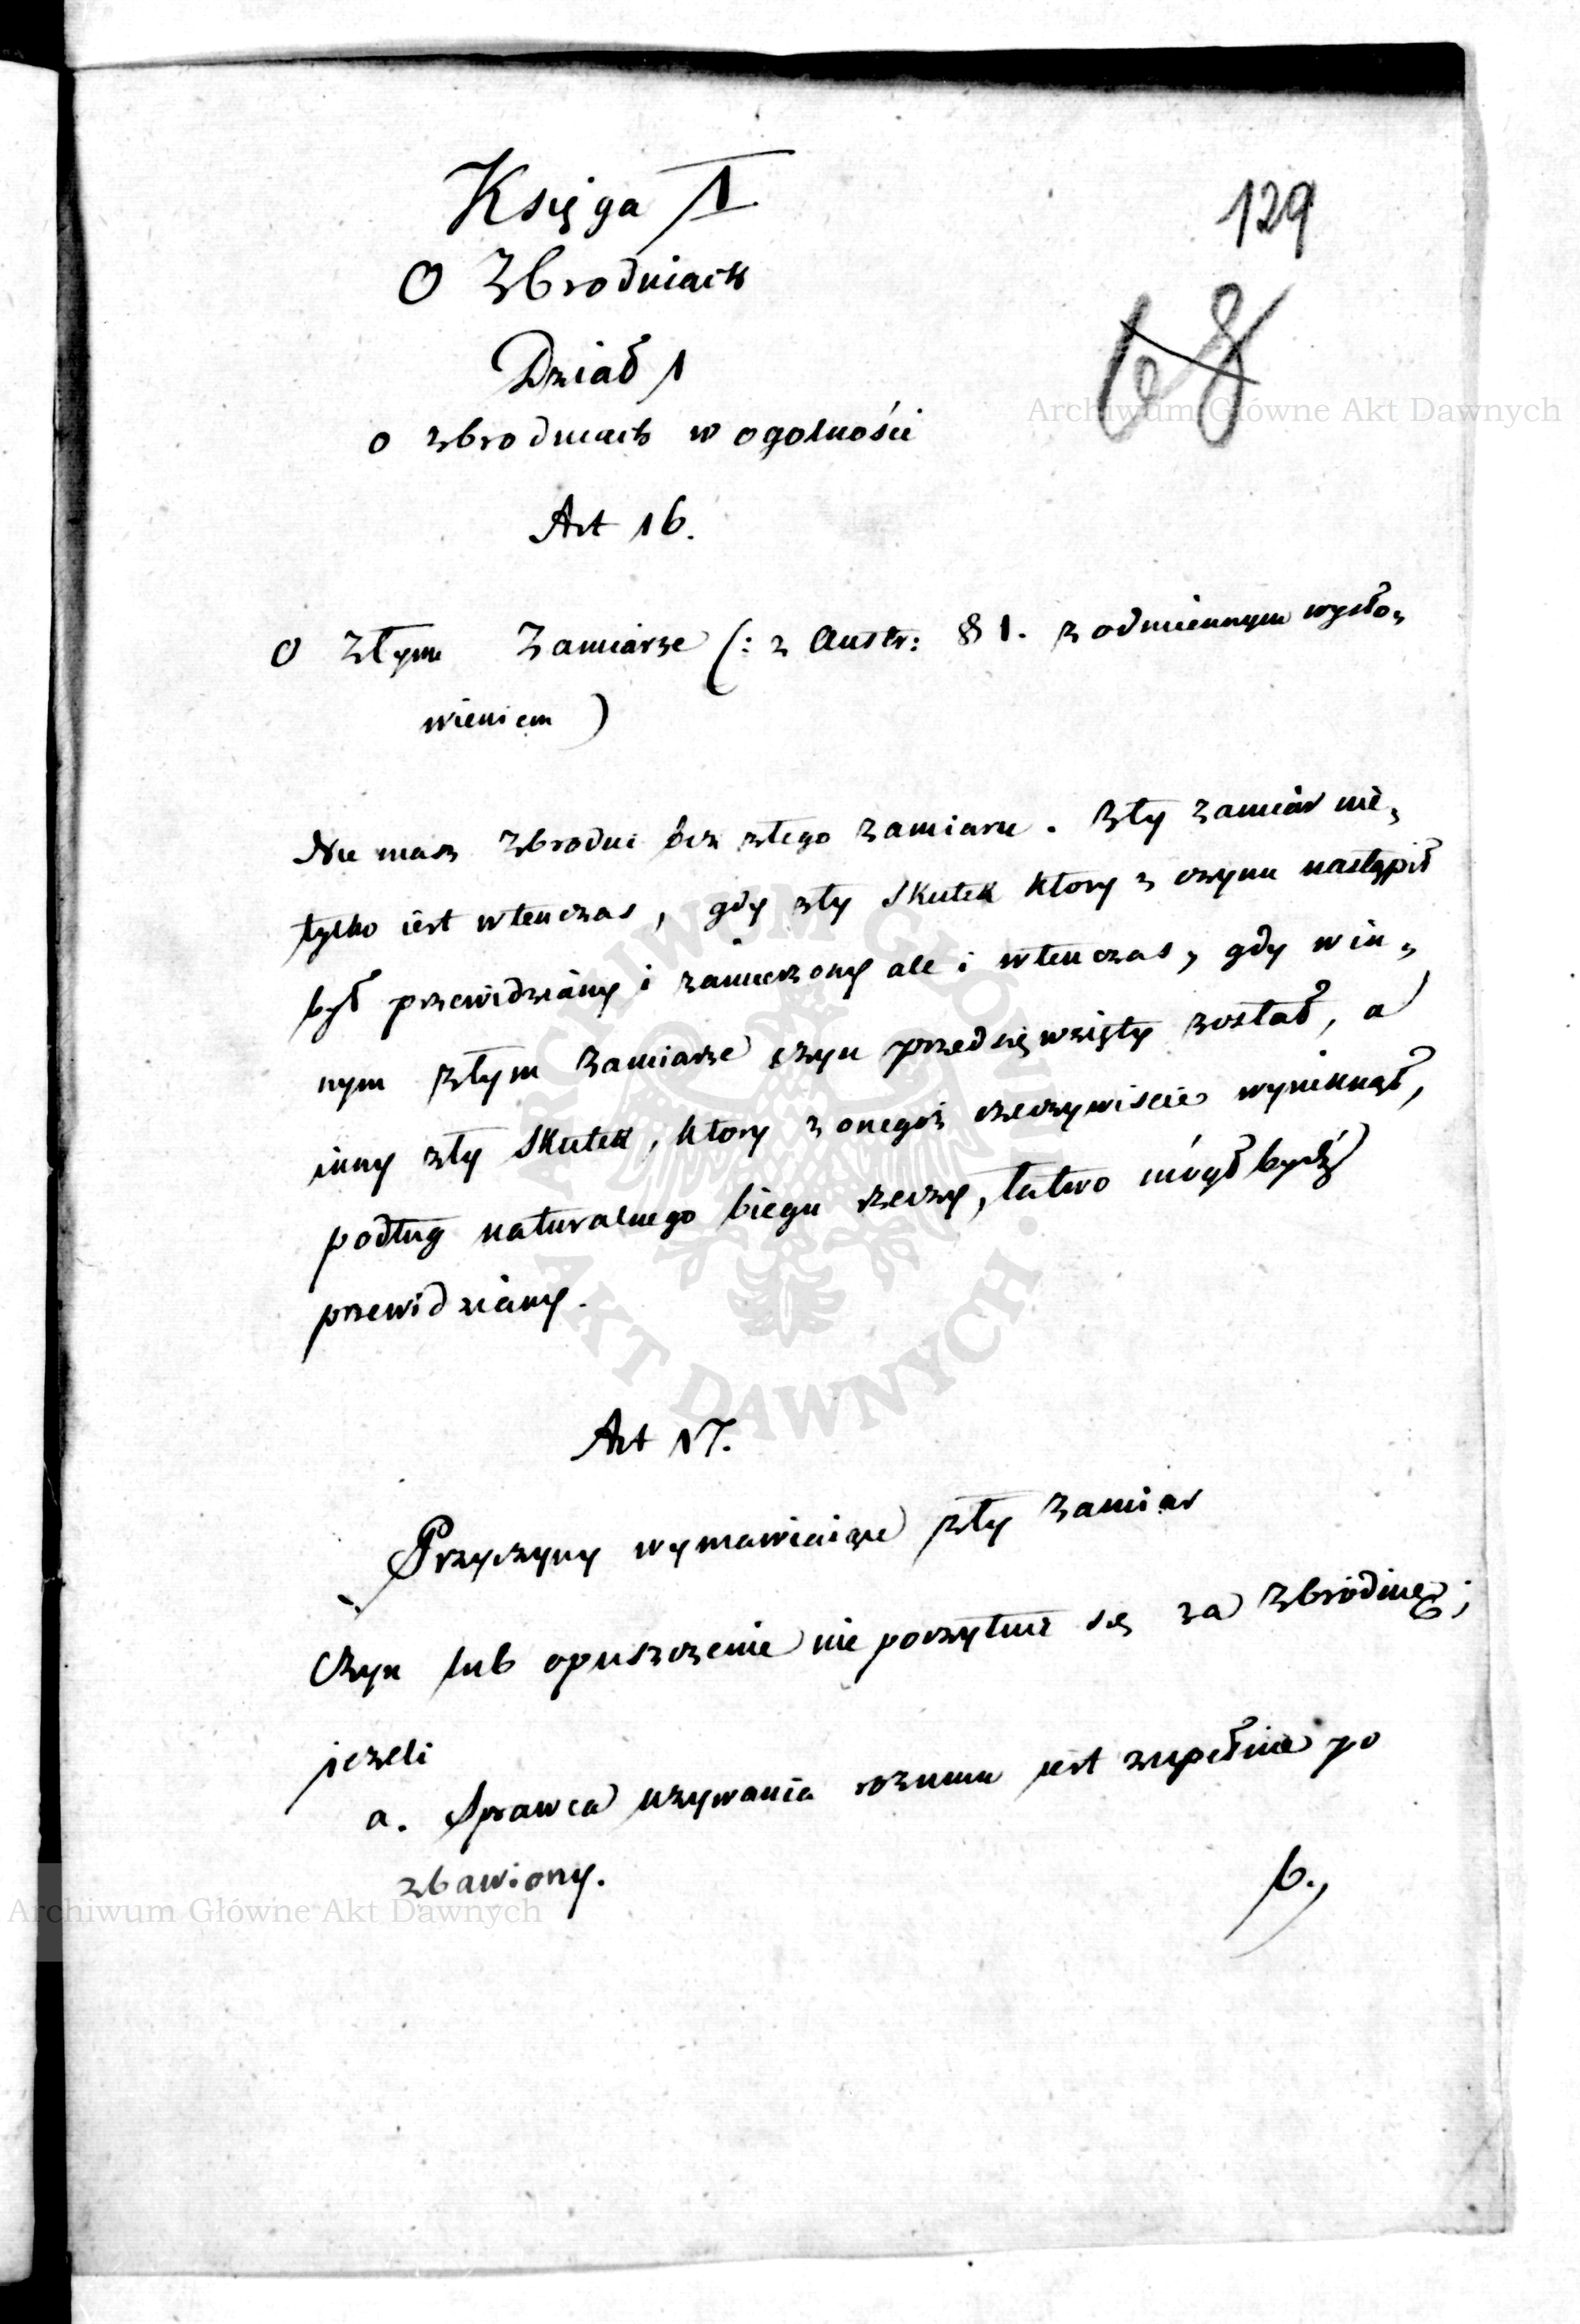 Księga I
129
O Zbrodniach
68
Dział 1
o zbrodniach w ogolności
Art 16.
O złym Zamiarze (: z Austr: § 1. z odmiennym wysło-
wieniem )
Nie masz Zbrodni bez złego zamiaru. Zły zamiar nie-
tylko iest wtenczas, gdy zły skutek ktory z czynu nastąpił
był przewidziany i zamierzony ale i wtenczas, gdy w in-
nym złym zamiarze czyn przedsięwzięty został, a
inny zły skutek, ktory z onegoż rzeczywiscie wyniknął,
podług naturalnego biegu rzeczy, łatwo mógł bydź
przewidziany.
Art 17.
Przyczyny wymawiaiące zły zamiar
Czyn lub opuszczenie nie poczytuie się za zbrodnię;
jezeli
a. Sprawca uzywania rozumu jest zupełnie po
zbawiony.
b.,
Archiwum Główne Akt Dawnych
ARCHIWUM GŁÓWNE AKT DAWNYCH
Archiwum Główne Akt Dawnych